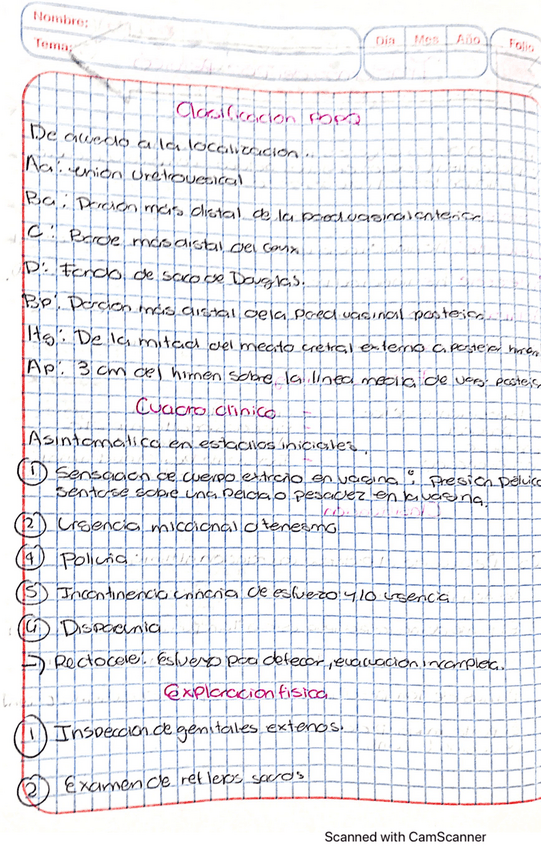 Nombre:
Tema:
Día Mes Año Folio
Clasificacion POPQ
De acuedo a la localizacion..
Aa: union uretrovesical
Ba: Porcion mas distal de la pared vaginal anterior
C: Borde mas distal del Cervix
D: Fondo de saco de Douglas.
Bp: Porcion mas distal de la pared vaginal posterior
Hg: De la mitad del meato uretral externo a posterior himen
Ap: 3 cm del himen sobre la linea media de
Cuadro clinico
Asintomatica en estadios iniciales.
① Sensacion de cuerpo extraño en vagina "; presion pelvica
sentarse sobre una pelota o pesadez en la vagina.
② Urgencia miccional o tenesmo
④ Poliuria
⑤ Incontinencia urinaria de esfuerzo y/o urgencia
④ Dispaeunia
→ Rectocele: Esfuerzo para defecar, evacuacion incompleta.
Exploracion fisica
① Inspeccion de genitales externos.
② Examen de reflejos sacros
Scanned with CamScanner